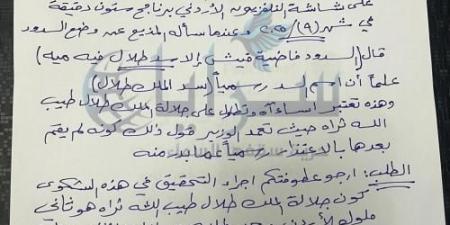 على شاشة التلفزيون الأردني برنامج ستون دقيقة
في شهر (٩)/
وعندما سأله المذيع عن وضع السدود
قال (السدود فاضية فيش إلا سد طلال فيه ميه)
علماً أن اسم السد رسمياً (سد الملك طلال)
وهذه تعتبر اساءة وتطاول على جلالة الملك طلال طيب
الله ثراه حيث تعمد الوزير قول ذلك كونه لم يقم
بعدها بالاعتذار رسمياً عما بدر منه
الطلب: ارجو عطوفتكم اجراء التحقيق في هذه الشكوى
كون جلالة الملك طلال طيب الله ثراه هو ثاني
ملوك الأردن
سرايا